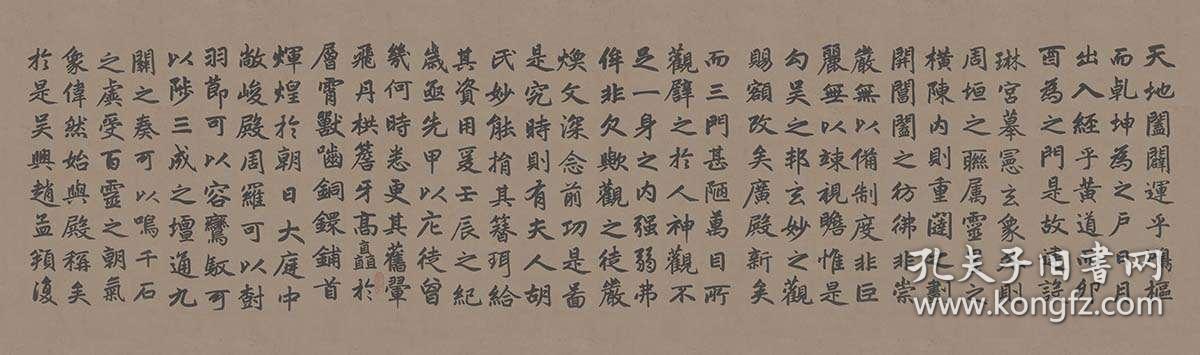 天地闔闢運乎鴻樞
而乹坤為之戸日月
出入經乎黃道而卯
酉為之門是故建設
琳宮摹憲玄象外則
周垣之聯属靈星之
橫陳內則重闥之劃
開閶闔之彷彿非崇
嚴無以備制度非巨
麗無以竦視瞻惟是
勾吳之邦玄妙之觀
賜額改矣廣殿新矣
而三門甚陋萬目所
觀譬之於人神觀不
足一身之内强弱弗
侔非欠歟觀之徒嚴
煥文深念前功是啚
是究時則有夫人胡
氏妙能捐其簪珥給
其資用爰壬辰之紀
歲亟先甲以庀徒曾
幾何時悉更其舊翬
飛丹栱簷牙高矗於
層霄獸嚙銅鐶鋪首
煇煌於朝日大庭中
敞峻殿周羅可以樹
羽節可以容鸞馭可
以陟三成之壇通九
關之奏可以鳴千石
之虡受百靈之朝氣
象偉然始與殿稱矣
於是吳興趙孟頫復
孔夫子旧书网
www.kongfz.com